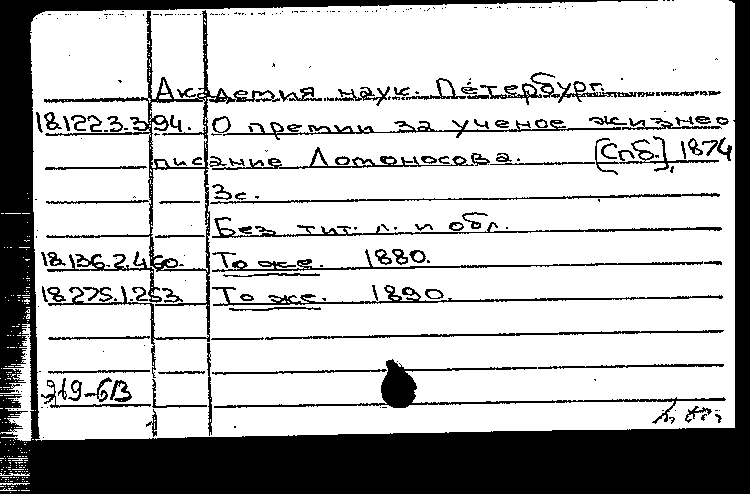 Академия наук. Петербург.
18.122.3.394. О премии за ученое жизнео-
писание Ломоносова. [Спб.], 1874
3с.
Без тит. л. и обл.
18.136.2.460. То же. 1880.
18.275.1.253. То же. 1890.